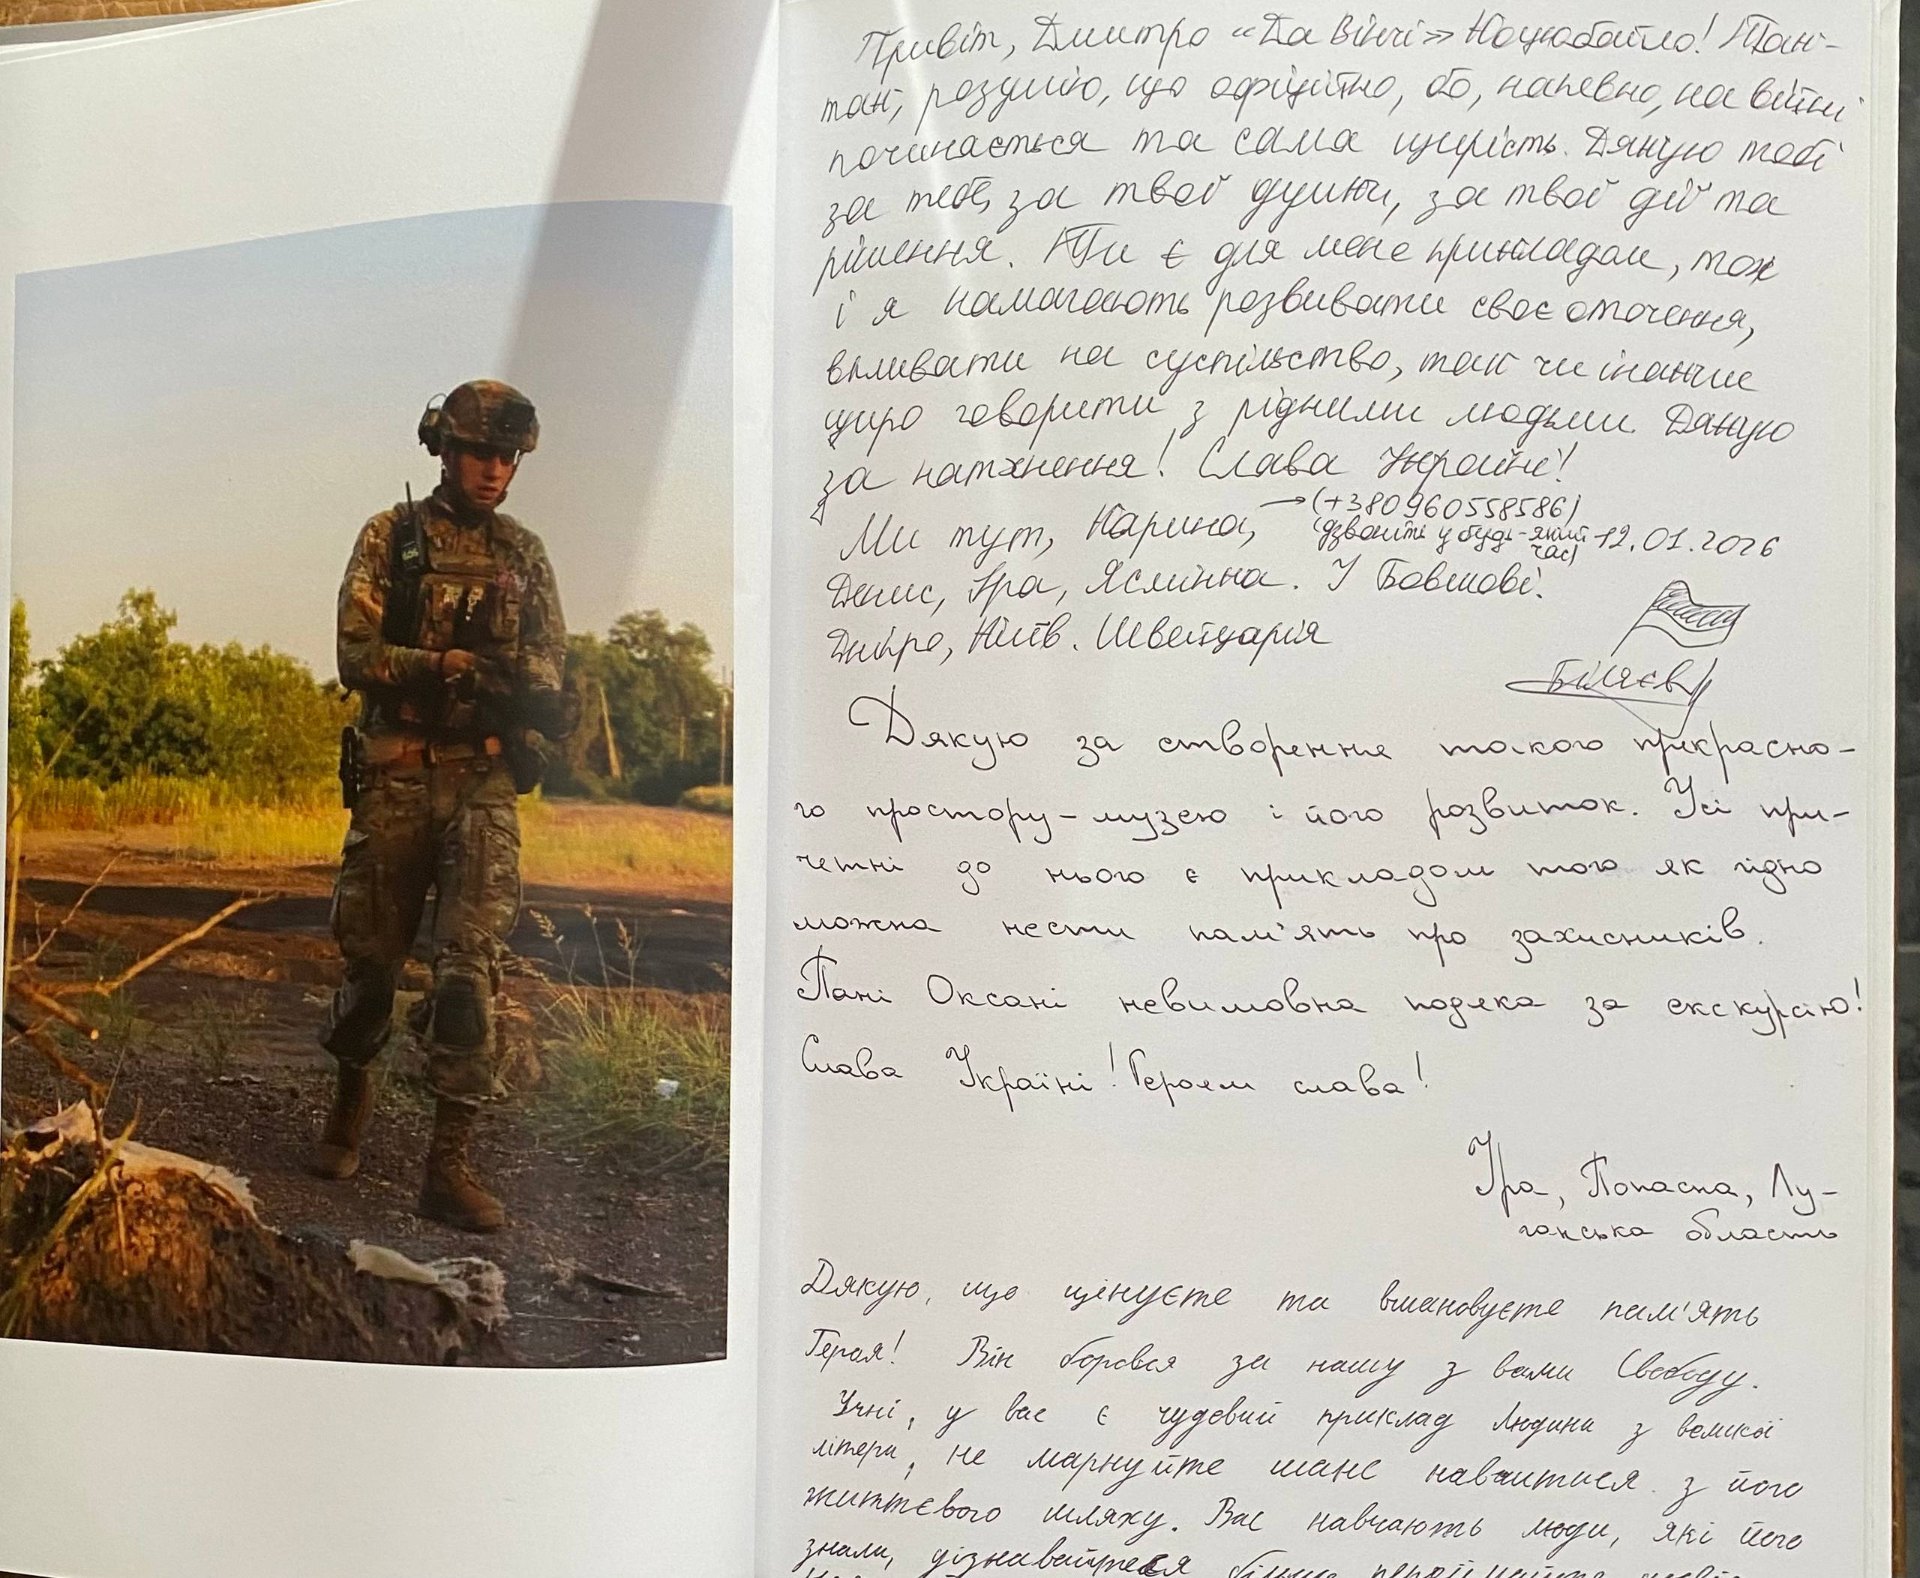 Привіт, Дмитро «Да Вінчі» Коцюбайло! Так-
так, розумію, що офіційно, бо, напевно, на війні
починається та сама щирість. Дякую тобі
за тебе, за твої думки, за твої дії та
рішення. Ти є для мене прикладом, тож
і я намагаюсь розвивати своє оточення,
впливати на суспільство, так чи інакше
щиро говорити з рідними людьми. Дякую
за натхнення! Слава Україні!
Ми тут, Карина, → (+380960558586)
(дзвоніть у будь-який час) 12.01.2026
Денис, Іра, Ясмінна. І
Дніро, Київ. Швейцарія
Біляєв
Дякую за створення такого прекрасно-
го простору-музею і його розвиток. Усі при-
четні до нього є прикладом того як гідно
можна нести пам'ять про захисників.
Пані Оксані невимовна подяка за екскурсію!
Слава Україні! Героям слава!
Іра, Попасна, Лу-
ганська область
Дякую, що цінуєте та вшановуєте пам'ять
Героя! Він боровся за нашу з вами Свободу.
Учні, у вас є чудовий приклад Людини з великої
літери, не марнуйте шанс навчитися з його
життєвого шляху. Вас навчають люди, які його
знали, дізнавайтеся більше